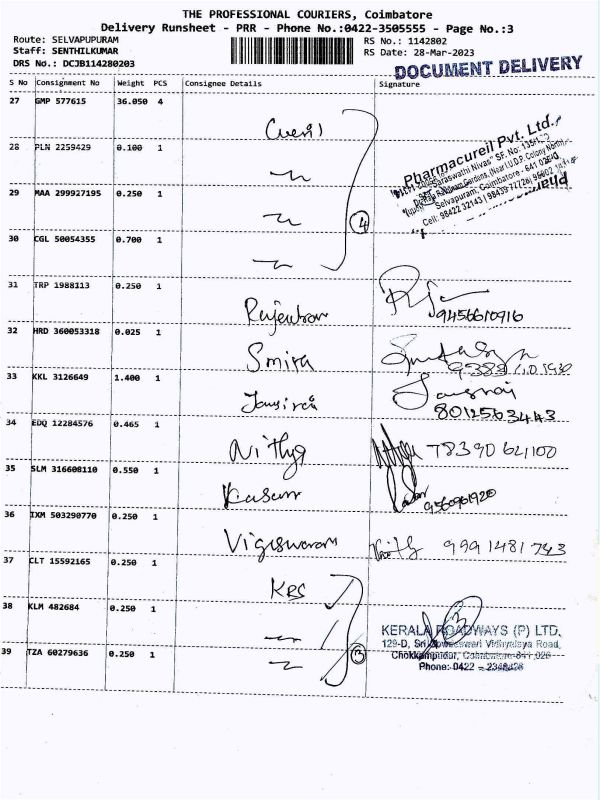 THE PROFESSIONAL COURIERS, Coimbatore
Delivery Runsheet - PRR - Phone No.:0422-3505555 - Page No.:3
Route: SELVAPUPURAM RS No.: 1142802
Staff: SENTHILKUMAR RS Date: 28-Mar-2023
DRS No.: DCJB114280203
DOCUMENT DELIVERY
S No Consignment No Weight PCS Consignee Details Signature
27 GMP 577615 36.050 4
28 PLN 2259429 0.100 1
Pharmacureil Pvt. Ltd.
"Saraswathi Nivas" SF. No: 135/1
Selvapuram, Coimbatore - 641 026
Cell: 98422 32143 | 98439 77726
29 MAA 299927195 0.250 1
4
30 CGL 50054355 0.700 1
31 TRP 1988113 0.250 1
9456610916
32 HRD 360053318 0.025 1 Smita
33 KKL 3126649 1.400 1
8012563443
34 EDQ 12284576 0.465 1 Nithya 7839061100
35 SLM 316608110 0.550 1
9560961920
36 IXM 503290770 0.250 1 Vigeswaram 9991481743
37 CLT 15592165 0.250 1 KRS
38 KLM 482684 0.250 1
KERALA ROADWAYS (P) LTD.
129-D, Vidhyalaya Road,
Chokkampudur, Coimbatore-641 026
Phone: 0422
39 TZA 60279636 0.250 1